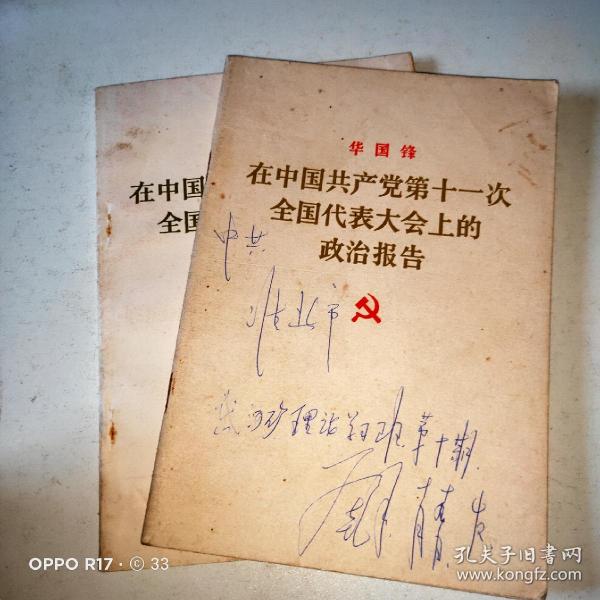 华国锋
在中国共产党第十一次
全国代表大会上的
政治报告
在中国
全国
中共
淮北市
矿理论班第十期
OPPO R17 · © 33
孔夫子旧书网
www.kongfz.com